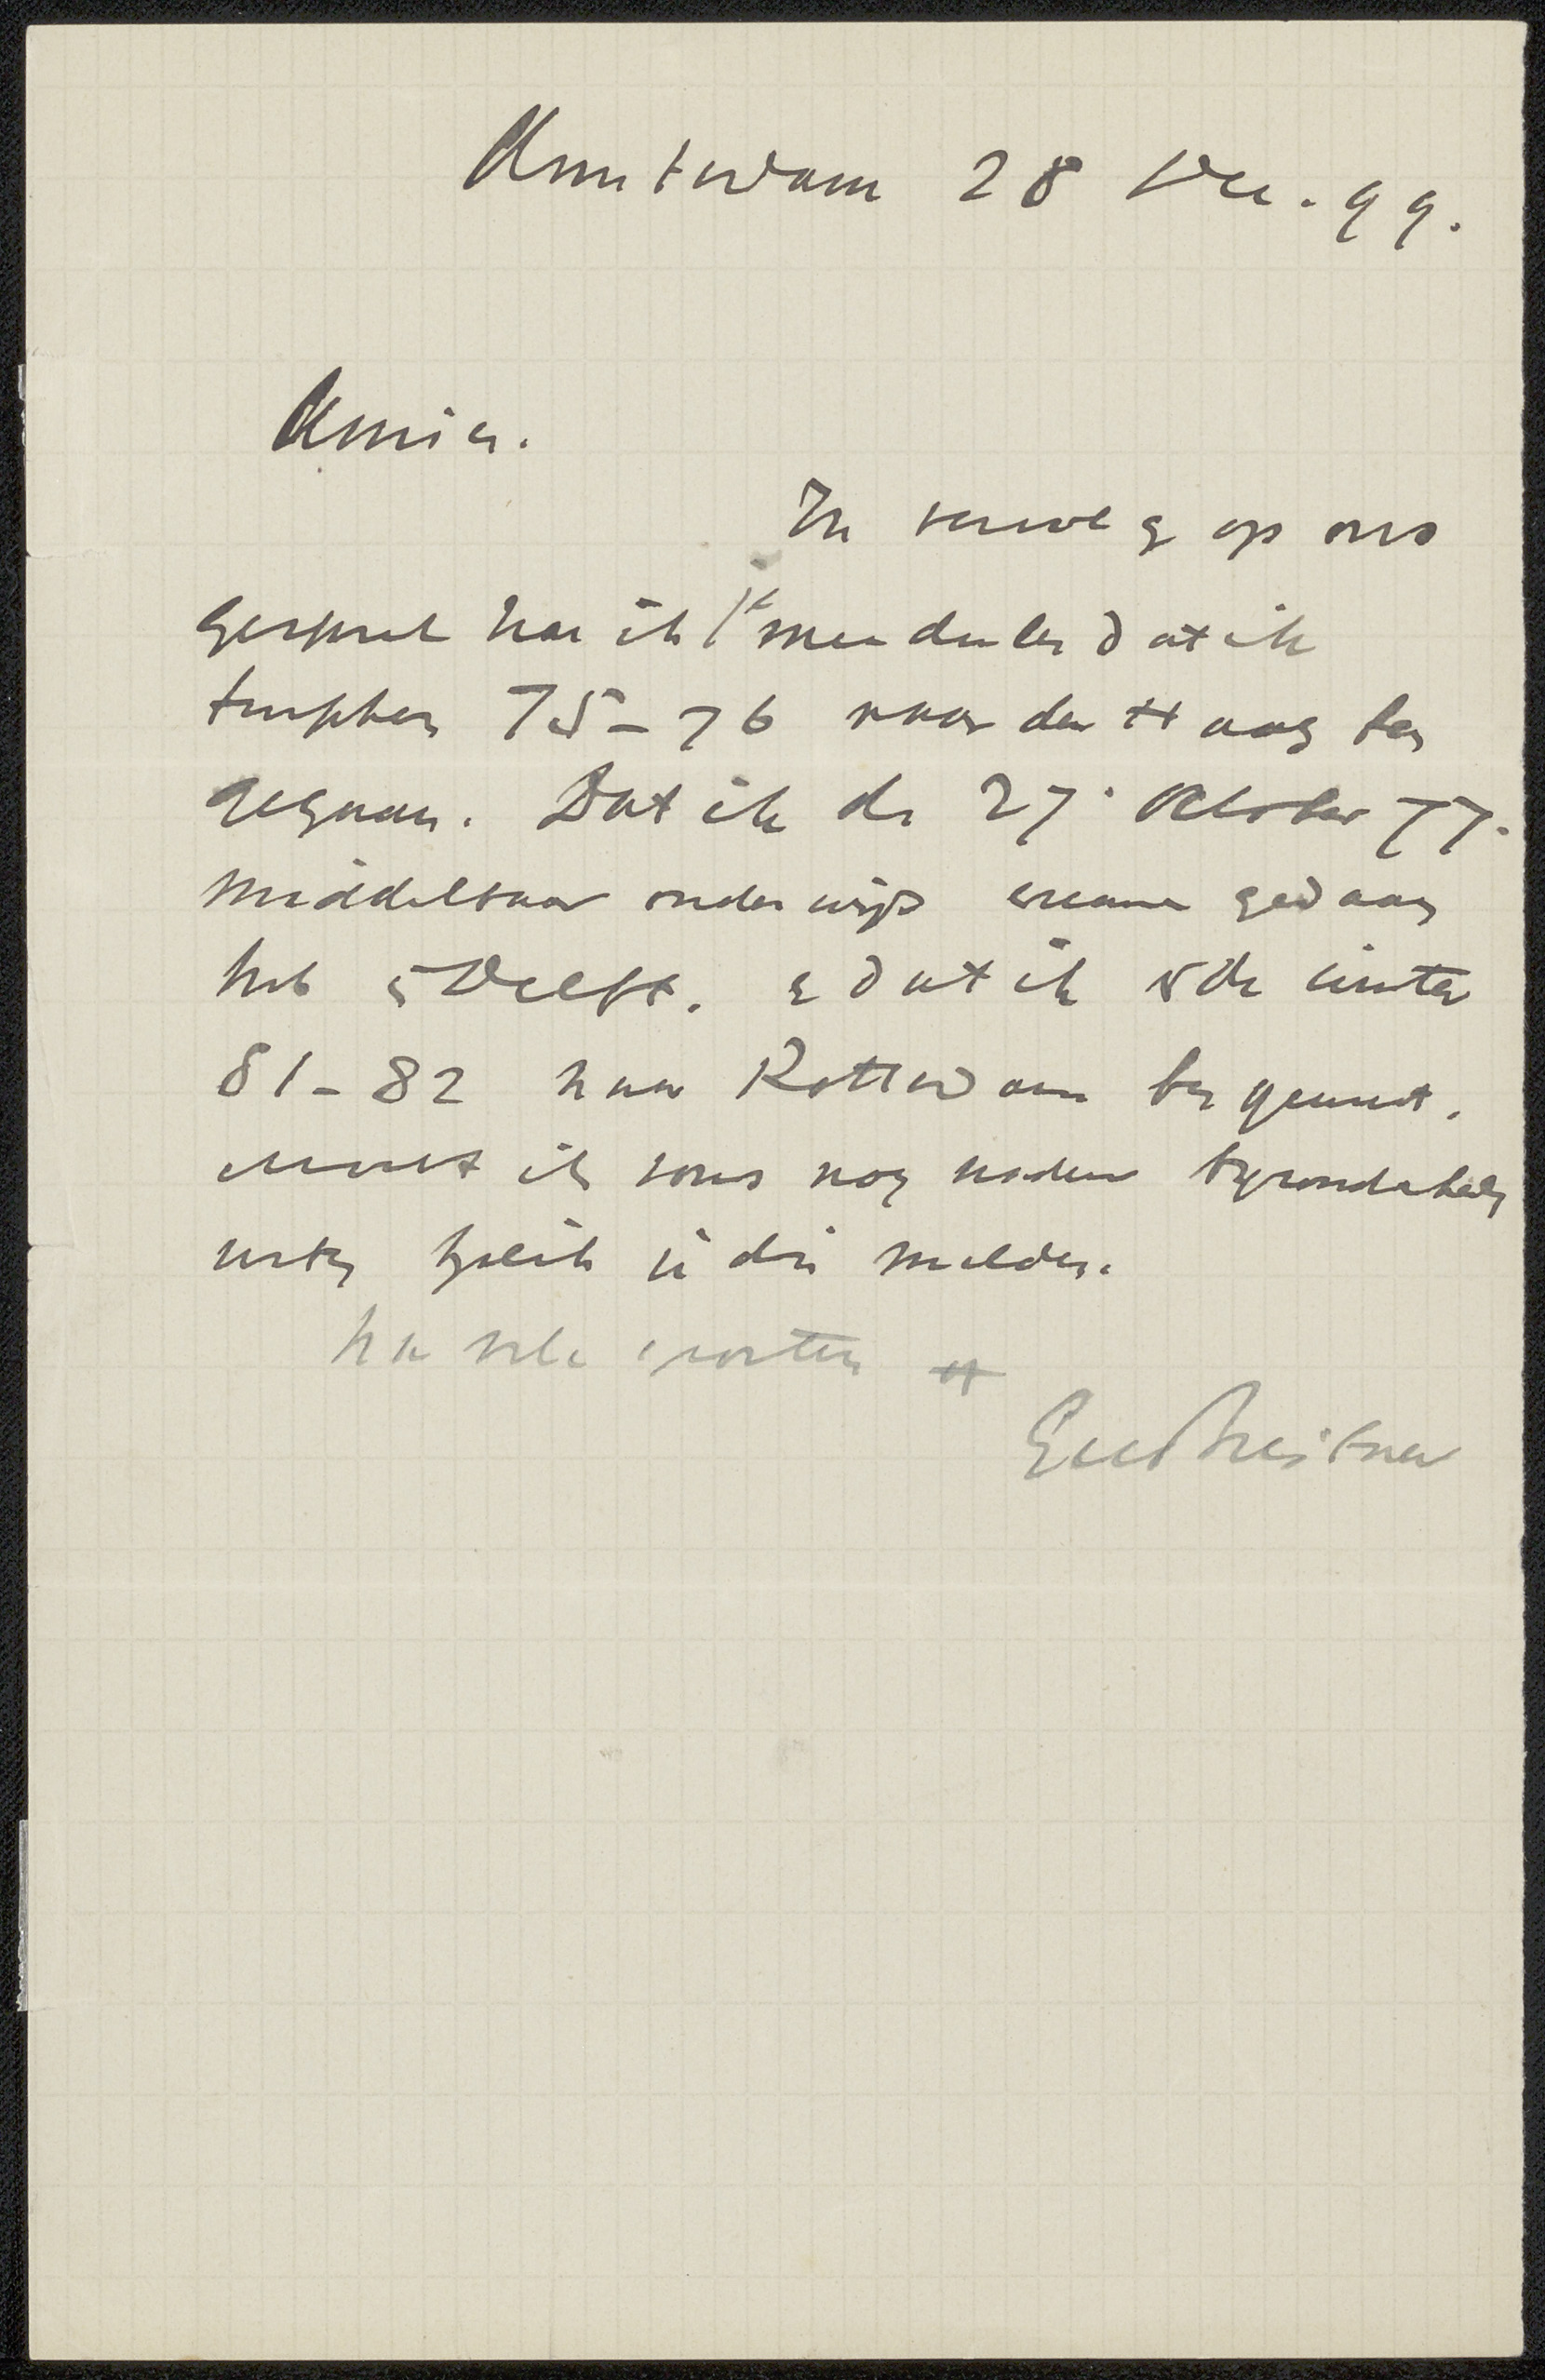 Amsterdam 28 Dec. 99.
Amice.
In vervolg op ons
gesprek kan ik je mededeelen dat ik
tusschen 75-76 naar den Haag ben
gegaan. Dat ik de 27. Oktober 77.
middelbaar onderwijs examen gedaan
heb in Delft. en dat ik de winter
81-82 naar Rotterdam ben geweest.
Mocht ik soms nog nadere bizonderheden
weten zal ik ü die melden.
Na vele groeten
GH Breitner